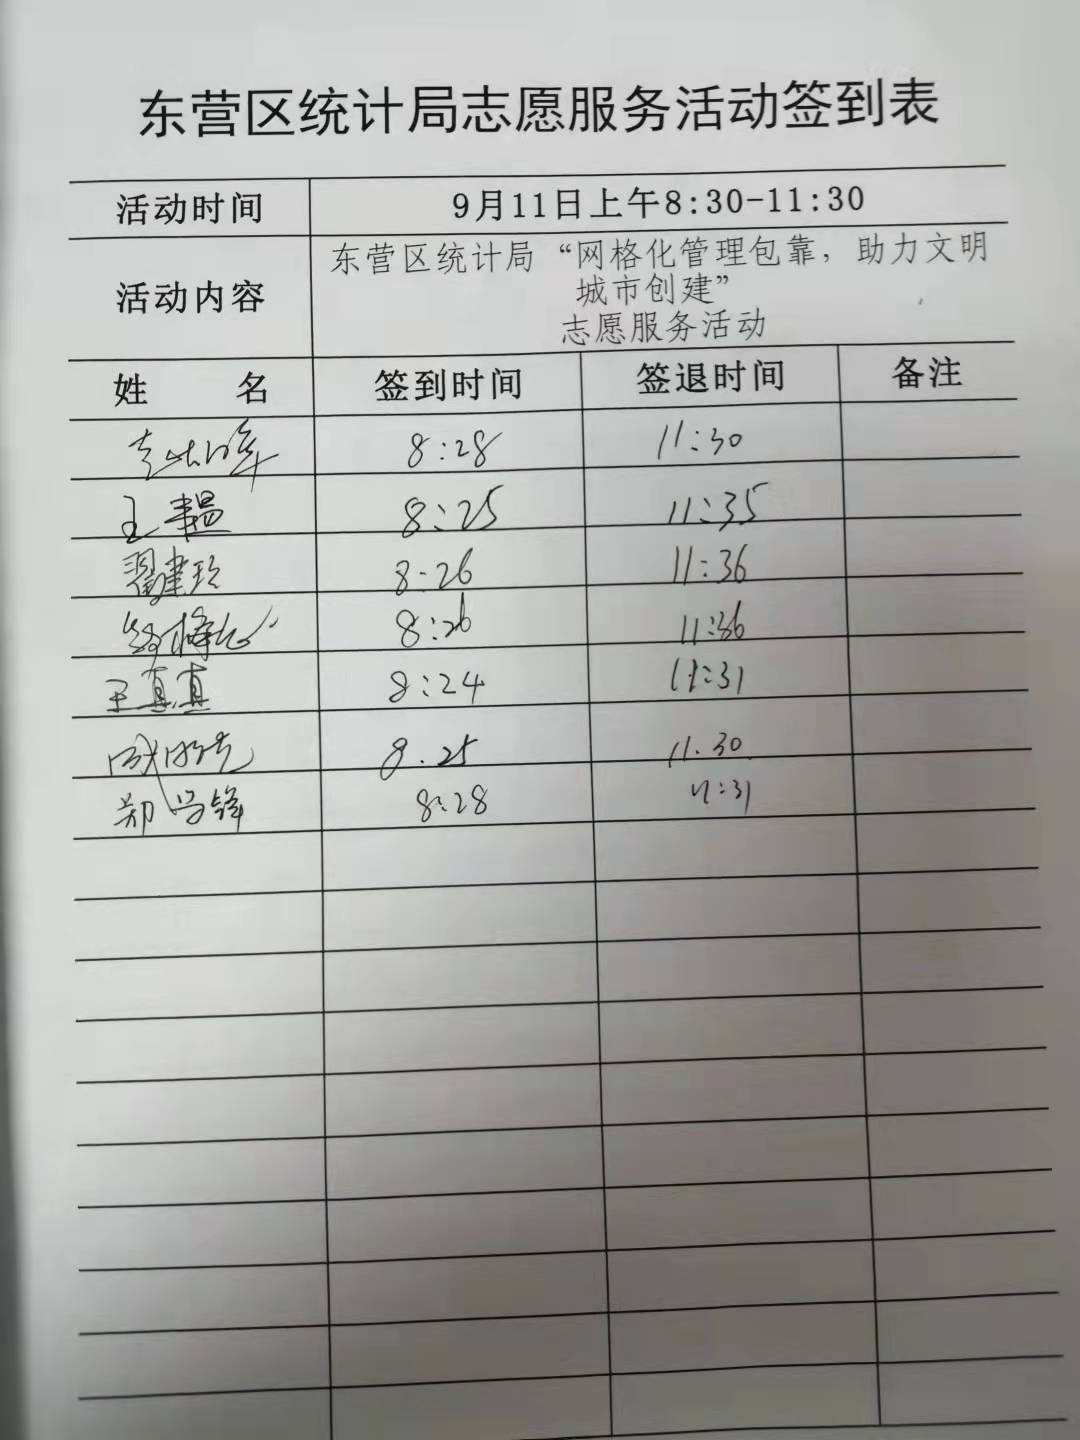 东营区统计局志愿服务活动签到表
活动时间 9月11日上午8:30-11:30
活动内容 东营区统计局“网格化管理包靠，助力文明
城市创建”
志愿服务活动
姓 名 签到时间 签退时间 备注
8:28 11:30
王 8:25 11:35
翟建玲 8:26 11:36
8:26 11:36
王真真 8:24 11:31
8.25 11.30
郑学锋 8:28 11:31